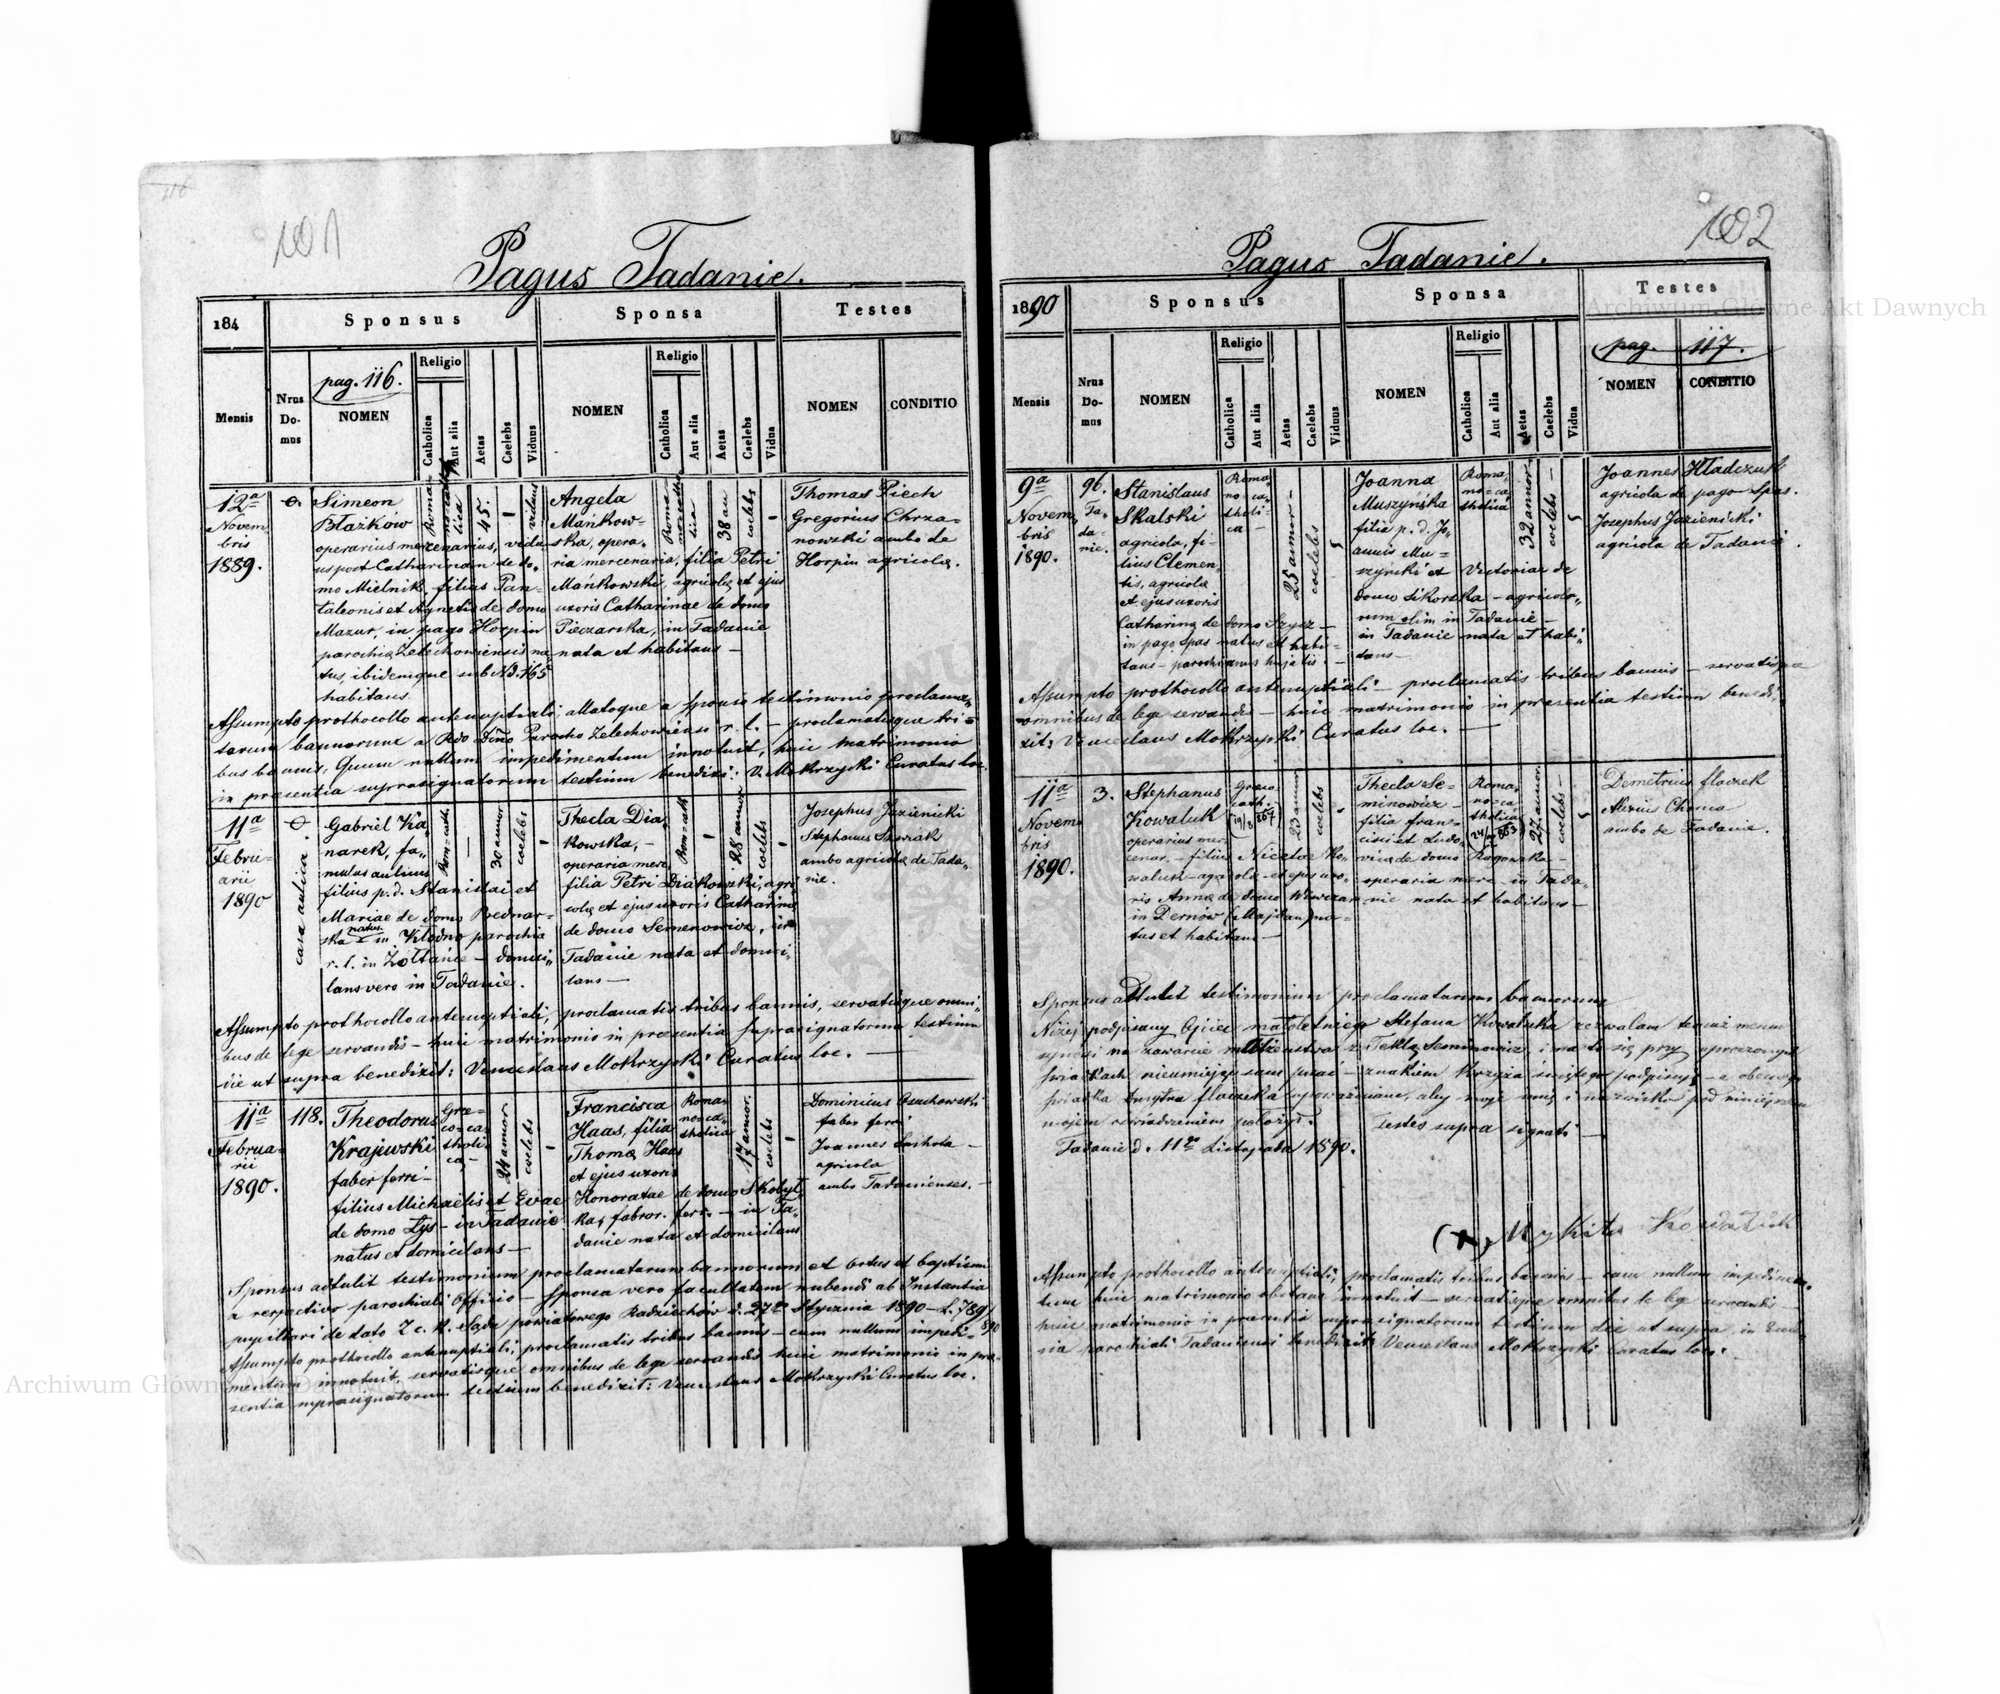 116
101
Pagus Tadanie.
184
Sponsus
Sponsa
Testes
Mensis
Nrus Domus
pag. 116.
NOMEN
Religio
Catholica
Aut alia
Aetas
Caelebs
Viduus
NOMEN
Religio
Catholica
Aut alia
Aetas
Caelebs
Vidua
NOMEN
CONDITIO
12a
Novem
bris
1889.
Simeon
Błażków
operarius mercenarius, vidu
us post Catharinam de do-
mo Mielnik, filius Pan-
taleonis et Agnetis de domo
Mazur, in pago Horpin
parochiæ Żelechowiensis na
tus, ibidemque sub N. 165
habitans.
45.
viduus
Angela
Mańkow-
ska, opera-
ria mercenaria, filia Petri
Mańkowski, agricolæ et ejus
uxoris Catharinae de domo
Pieczarska, in Tadanie
nata et habitans —
38 an
coelebs
Thomas Piech
Gregorius Chrza-
nowski ambo de
Horpin agricolæ.
Assumpto prothocollo antenuptiali, allatoque a sponso testimonio proclama-
torum bannorum a Rdo Dño Parocho Żelechowiensi r. l. — proclamatisque tri-
bus bannis, Quum nullum impedimentum innotuit, huic matrimonio
in præsentia suprasignatorum testium benedixi: V. Mokrzycki Curatus loc.
11a
Febru-
arii
1890
casa aulica.
Gabriel Ka
narek, fa-
mulus aulicus
filius p. d. Stanislai et
Mariae de domo Bednar-
ska natus in Kłodno parochia
r. l. in Żółtańce — domici-
lans vero in Tadanie.
Rom-cath
30 annor
coelebs
Thecla Dia
kowska, —
operaria merc.
filia Petri Diakowski, agri
colæ et ejus uxoris Catharinæ
de domo Semenowicz, in
Tadanie nata et domici-
lans —
Rom-cath
28 annor
coelebs
Josephus Jazienicki
Stephanus
ambo agricolæ de Tada-
nie.
Assumpto prothocollo antenuptiali, proclamatis tribus bannis, servatisque omni-
bus de lege servandis — huic matrimonio in præsentia suprasignatorum testium
die ut supra benedixit: Venceslaus Mokrzycki Curatus loc. —
11a
Februa-
rii
1890.
118.
Theodorus
Krajewski
faber ferri-
filius Michaelis et Evae
de domo Lys — in Tadanie
natus et domicilans —
Græ-
co-ca-
tholi-
ca
24 annor
coelebs
Francisca
Haas, filia
Thomæ Haas
et ejus uxoris
Honoratae de domo Skobyl
ka, fabror. ferr. — in Ta-
danie nata et domicilans
Roma-
no-ca-
tholica
17 annor.
coelebs
Dominicus
faber ferri
Joannes
agricola
ambo Tadanienses. —
Sponsus adtulit testimonium proclamatorum bannorum et ortus et baptismi
a respectivo parochiali Officio — Sponsa vero facultatem nubendi ab Instantia
pupillari de dato Z c. k. Sądu powiatowego Radziechów d. 27go Stycznia 1890 — L. 789/890
Assumpto prothocollo antenuptiali, proclamatis tribus bannis — cum nullum impedi-
mentum innotuit, servatisque omnibus de lege servandis huic matrimonio in præ-
sentia suprasignatorum testium benedixit: Venceslaus Mokrzycki Curatus loc.
102
Pagus Tadanie.
1890
Sponsus
Sponsa
Testes
pag. 117.
Mensis
Nrus Domus
NOMEN
Religio
Catholica
Aut alia
Aetas
Caelebs
Viduus
NOMEN
Religio
Catholica
Aut alia
Aetas
Caelebs
Vidua
NOMEN
CONDITIO
9a
Novem
bris
1890.
96.
Ta-
da-
nie.
Stanislaus
Skalski
agricola, fi-
lius Clemen
tis, agricolæ
et ejus uxoris
Catharinæ de domo Szysz —
in pago Spas natus et habi-
tans — parochianus hujatis. —
Roma
no-ca
tholi-
ca —
25 annor —
coelebs
Joanna
Muszyńska
filia p. d. Jo-
annis Mu-
szyński et Victoriae de
domo Sikorska — agricola-
rum olim in Tadanie —
in Tadanie nata et habi-
tans —
Roma
no-ca
tholica
32 annor —
coelebs —
Joannes Hładczuk
agricola de pago Spas.
Josephus Jazienicki
agricola de Tadanie.
Assumpto prothocollo antenuptiali — proclamatis tribus bannis — servatisque
omnibus de lege servandis — huic matrimonio in præsentia testium benedi-
xit: Venceslaus Mokrzycki Curatus loc. —
11a
Novem
bris
1890.
3.
Stephanus
Kowaluk
operarius mer
cenar. — filius Nicetae Ko-
waluk — agricolæ — et ejus uxo-
ris Annæ de domo
in Dernów (Majdan) na-
tus et habitans —
Græco
cath.
(19/8 867)
23 annor
coelebs
Thecla Se-
minowicz —
filia Fran-
cisci et Ludo-
vicæ de domo Rogowska —
operaria merc. in Tada-
nie nata et habitans —
Roma-
no-ca
tholica
27 annor.
coelebs —
Demetrius Flaczek
Alexius Choma
ambo de Tadanie.
Sponsus adtulit testimonium proclamatorum bannorum
Niżej podpisany Ojciec małoletniego Stefana Kowaluka zezwalam temuż memu
synowi na zawarcie małżeństwa z Teklą Seminowicz, i na to się przy uproszonych
świadkach nieumiejąc sam pisać — znakiem krzyża świętego podpisuję — a obecnego
świadka Dmytra Flaczka upoważniam, aby moje imię i nazwisko pod niniejszem
mojem oświadczeniem położył.
Testes supra signati —
Tadanie d. 11go Listopada 1890.
(+) Mykita Kowaluk
Assumpto prothocollo antenuptiali, proclamatis tribus bannis — cum nullum impedimen-
tum huic matrimonio obstans innotuit — servatisque omnibus de lege servandis —
huic matrimonio in præsentia suprasignatorum testium die ut supra in Eccle-
sia parochiali Tadaniensi benedixit Venceslaus Mokrzycki Curatus loci. —
Archiwum Główne Akt Dawnych
Archiwum Główne Akt Dawnych